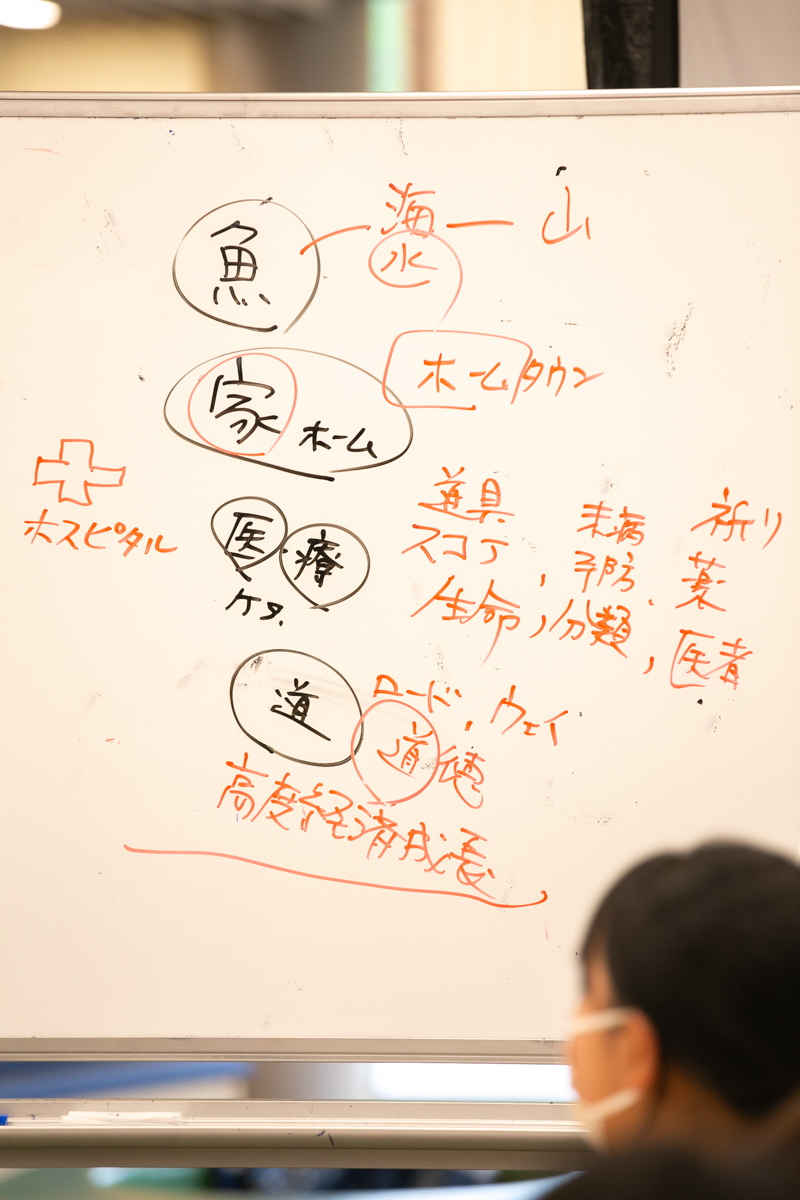 魚 海 山
水
ホームタウン
家 ホーム
ホスピタル
医療
ケア
道具 未病 祈り
予防、薬
生命，分類，医者
道 ロード，ウェイ
道徳
高度経済成長